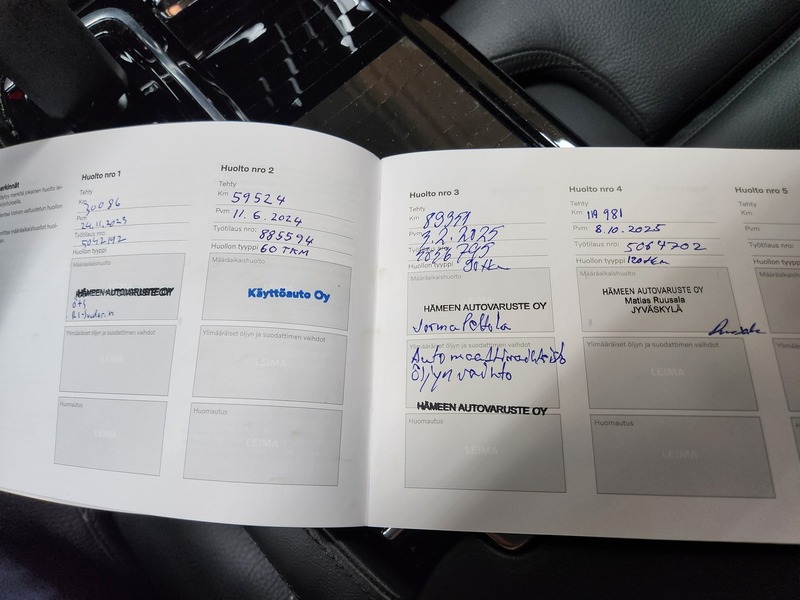 Huolto nro 1
Tehty
Km 30086
Pvm 24.11.2023
Työtilaus nro: 5042192
Huollon tyyppi
Määräaikaishuolto
HÄMEEN AUTOVARUSTE OY
Ylimääräiset öljyn ja suodattimen vaihdot
LEIMA
Huomautus
LEIMA
Huolto nro 2
Tehty
Km 59524
Pvm 11.6.2024
Työtilaus nro: 885594
Huollon tyyppi 60 TKM
Määräaikaishuolto
Käyttöauto Oy
Ylimääräiset öljyn ja suodattimen vaihdot
LEIMA
Huomautus
LEIMA
Huolto nro 3
Tehty
Km 89351
Pvm 3.2.2025
Työtilaus nro:
Huollon tyyppi 90tkm
Määräaikaishuolto
HÄMEEN AUTOVARUSTE OY
Jorma
Ylimääräiset öljyn ja suodattimen vaihdot
Automaattivaihteisto
Öljyn vaihto
HÄMEEN AUTOVARUSTE OY
Huomautus
LEIMA
Huolto nro 4
Tehty
Km 119 981
Pvm 8.10.2025
Työtilaus nro: 5064702
Huollon tyyppi 120tkm
Määräaikaishuolto
HÄMEEN AUTOVARUSTE OY
Matias Ruusala
JYVÄSKYLÄ
Ylimääräiset öljyn ja suodattimen vaihdot
LEIMA
Huomautus
LEIMA
Huolto nro 5
Tehty
Km
Pvm
Työtilaus nro: